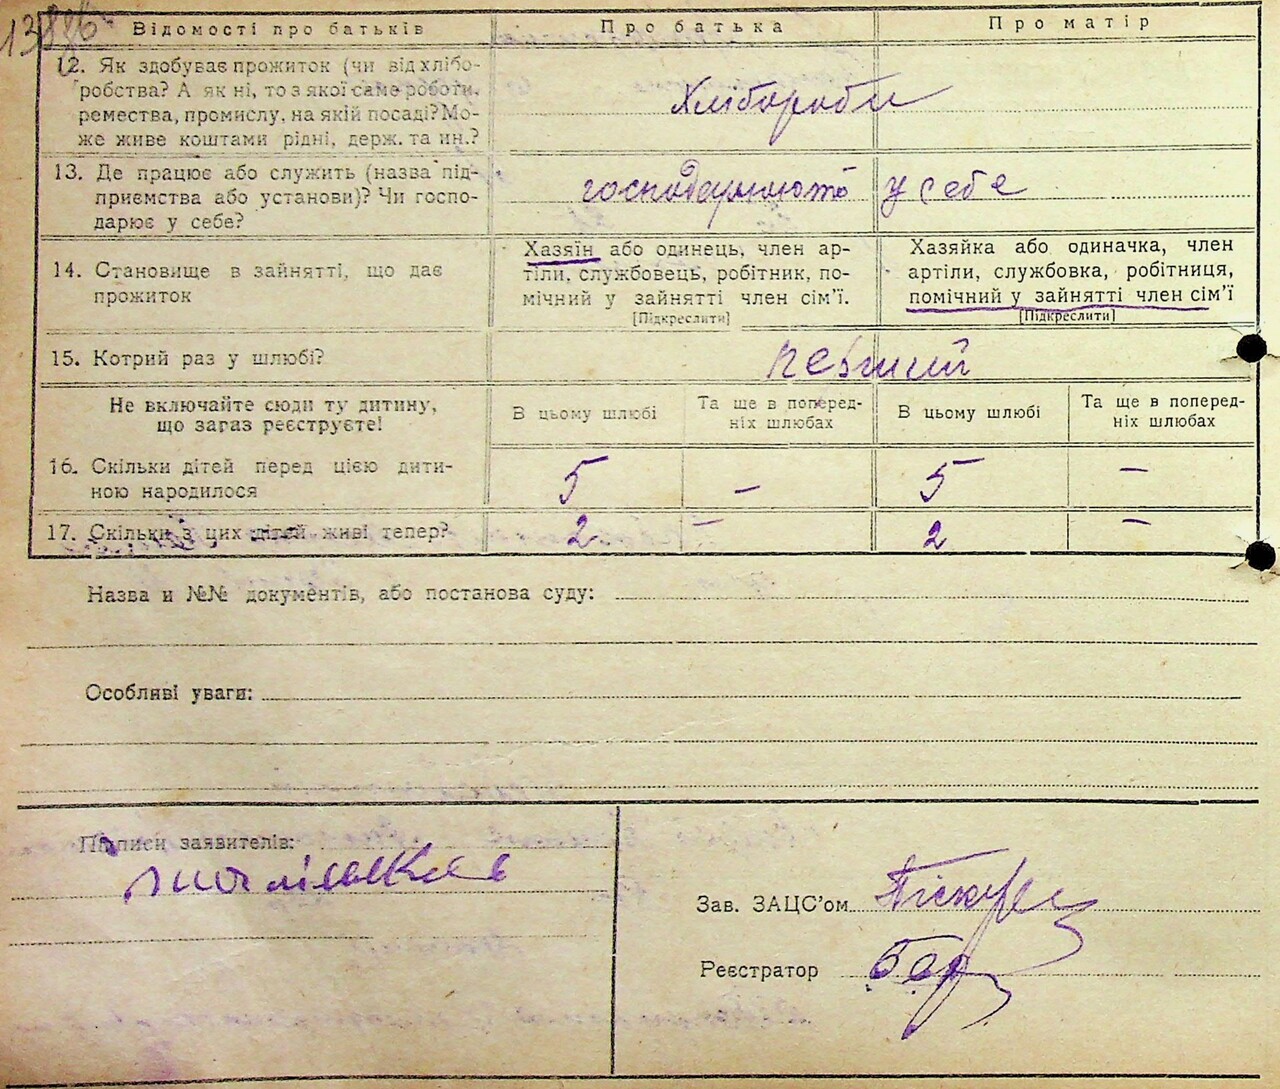 Відомості про батьків Про батька Про матір
12. Як здобуває прожиток (чи від хлібо-
робства? А як ні, то з якої саме роботи,
ремества, промислу, на якій посаді? Мо-
же живе коштами рідні, держ. та ин.?
Хлібороби
13. Де працює або служить (назва під-
приємства або установи)? Чи госпо-
дарює у себе?
господарюють у себе
14. Становище в зайнятті, що дає
прожиток
Хазяїн або одинець, член ар-
тіли, службовець, робітник, по-
мічний у зайнятті член сім'ї.
[Підкреслити]
Хазяйка або одиначка, член
артіли, службовка, робітниця,
помічний у зайнятті член сім'ї
[Підкреслити]
15. Котрий раз у шлюбі?
первий
Не включайте сюди ту дитину,
що загаз реєструєте!
В цьому шлюбі
Та ще в поперед-
ніх шлюбах
В цьому шлюбі
Та ще в поперед-
ніх шлюбах
16. Скільки дітей перед цією дити-
ною народилося
5 – 5 –
17. Скільки з цих дітей живі тепер?
2 – 2 –
Назва и №№ документів, або постанова суду:
Особливі уваги:
Підписи заявителів:
Зав. ЗАЦС'ом
Реєстратор